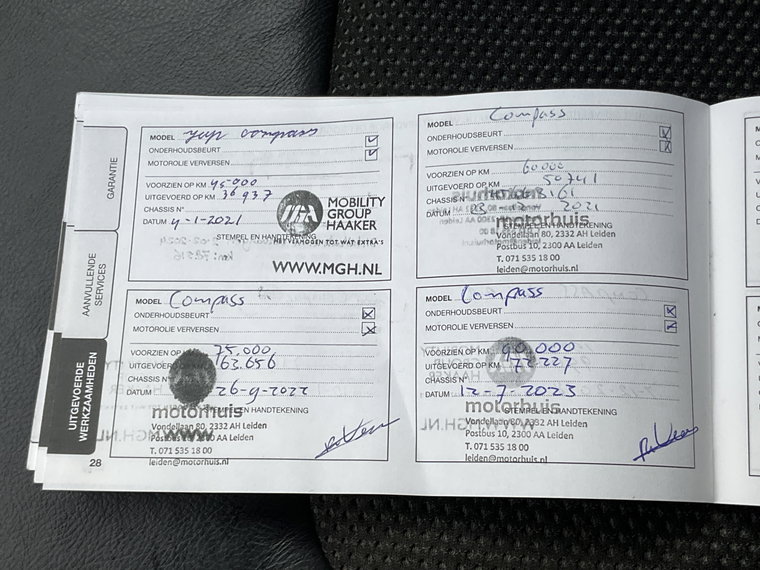 GARANTIE
AANVULLENDE
SERVICES
UITGEVOERDE
WERKZAAMHEDEN
28
MODEL Jeep compass
ONDERHOUDSBEURT
MOTOROLIE VERVERSEN
VOORZIEN OP KM 45-000
UITGEVOERD OP KM 36937
CHASSIS N°
DATUM 4-1-2021
STEMPEL EN HANDTEKENING
MGH
MOBILITY
GROUP
HAAKER
HET VERMOGEN TOT WAT EXTRA'S
WWW.MGH.NL
MODEL Compass
ONDERHOUDSBEURT
MOTOROLIE VERVERSEN
VOORZIEN OP KM 60000
UITGEVOERD OP KM 50741
CHASSIS N°
DATUM 2021
STEMPEL EN HANDTEKENING
motorhuis
Vondellaan 80, 2332 AH Leiden
Postbus 10, 2300 AA Leiden
T. 071 535 18 00
leiden@motorhuis.nl
MODEL Compass
ONDERHOUDSBEURT
MOTOROLIE VERVERSEN
VOORZIEN OP KM 75.000
UITGEVOERD OP KM 63.656
CHASSIS N°
DATUM 26-9-2022
STEMPEL EN HANDTEKENING
motorhuis
Vondellaan 80, 2332 AH Leiden
Postbus 10, 2300 AA Leiden
T. 071 535 18 00
leiden@motorhuis.nl
MODEL Compass
ONDERHOUDSBEURT
MOTOROLIE VERVERSEN
VOORZIEN OP KM 90.000
UITGEVOERD OP KM 77227
CHASSIS N°
DATUM 12-7-2023
STEMPEL EN HANDTEKENING
motorhuis
Vondellaan 80, 2332 AH Leiden
Postbus 10, 2300 AA Leiden
T. 071 535 18 00
leiden@motorhuis.nl